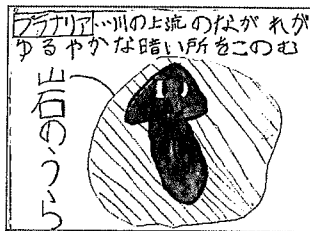 プラナリア…川の上流のながれが
ゆるやかな暗い所をこのむ
山石のうら